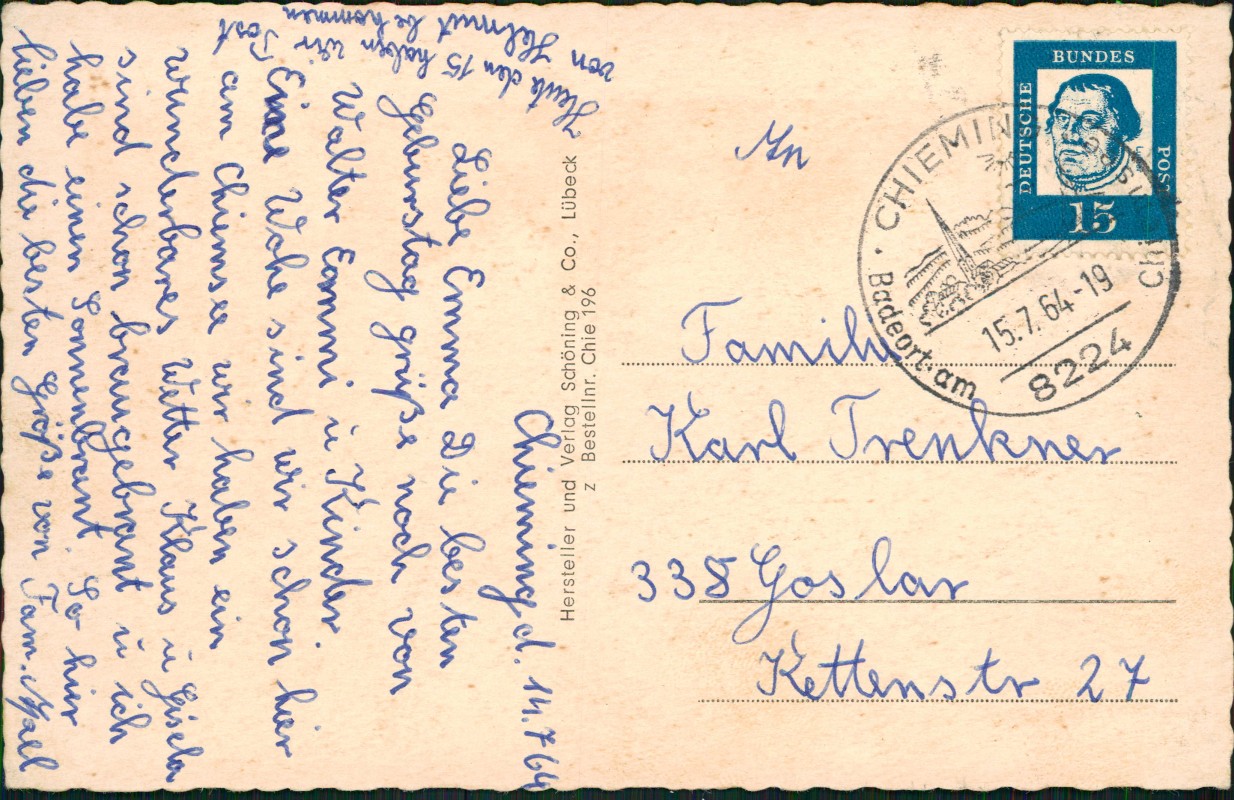 Chieming d. 14.7.64
Liebe Emma Die besten
Geburstag grüße noch von
Walter Emmi u Kinder.
Eine Woche sind wir schon hier
am Chiemsee wir haben ein
wunderbares Wetter Klaus u Gisela
sind schon braungebrant u ich
habe einen Sonnenbrant. So hier
lieben die besten Grüße von Fam.
Heute den 15 haben wir Post
von Helmut bekommen
Hersteller und Verlag Schöning & Co., Lübeck
z Bestellnr. Chie 196
DEUTSCHE BUNDES POST
15
CHIEMING
Badeort am
15.7.64-19
8224
An
Familie
Karl Trenkner
338 Goslar
Kettenstr 27